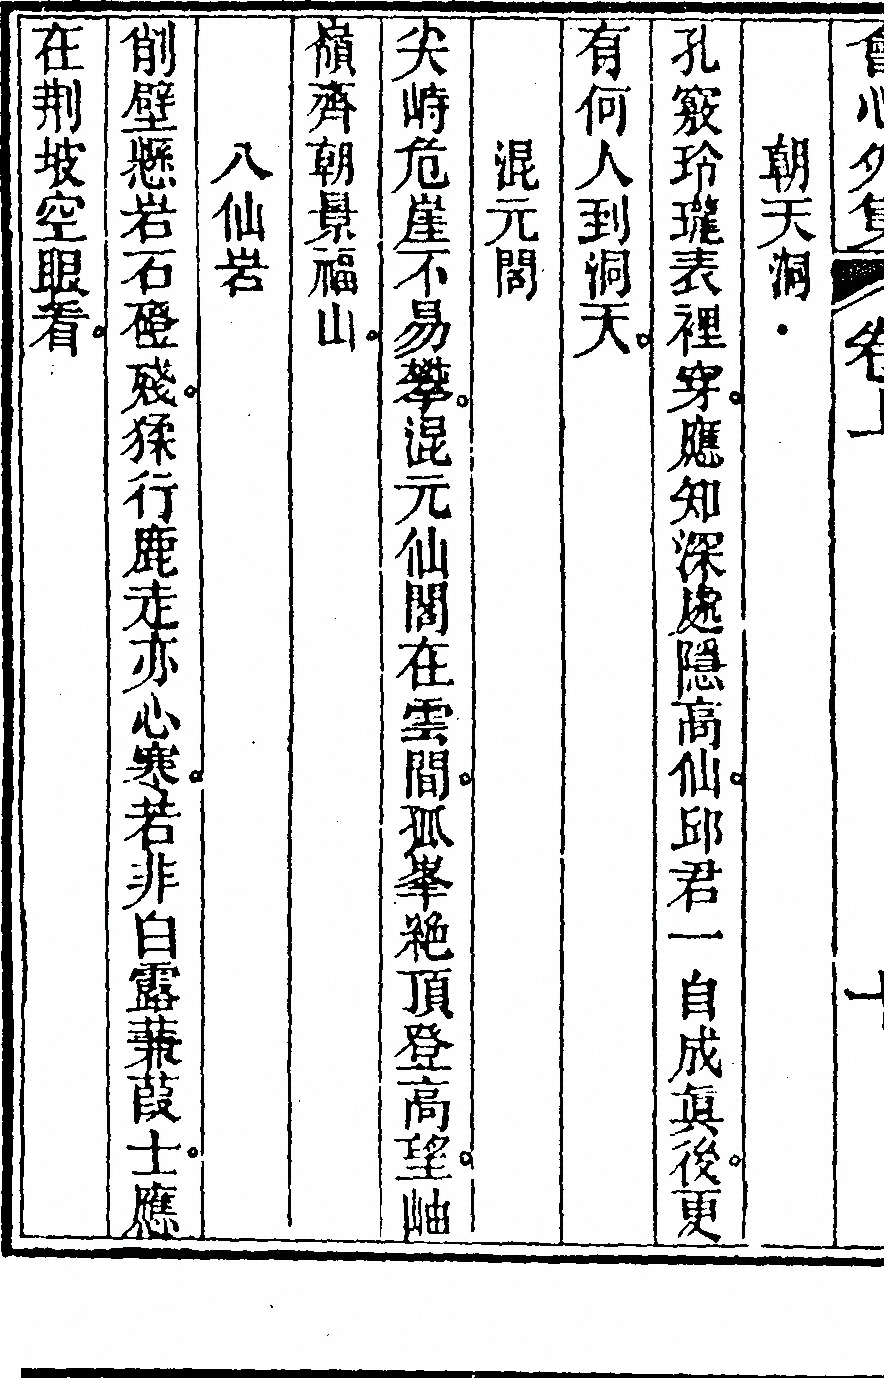 會心外集 卷上 十
朝天洞
孔竅玲瓏表裡穿。應知深處隱高仙。邱君一自成眞後。更
有何人到洞天。
混元閣
尖峙危崖不易攀。混元仙閣在雲間。孤峯絶頂登高望。岫
嶺齊朝景福山。
八仙岩
削壁懸岩石磴殘。猱行鹿走亦心寒。若非白露蒹葭士。應
在荆坡空眼看。